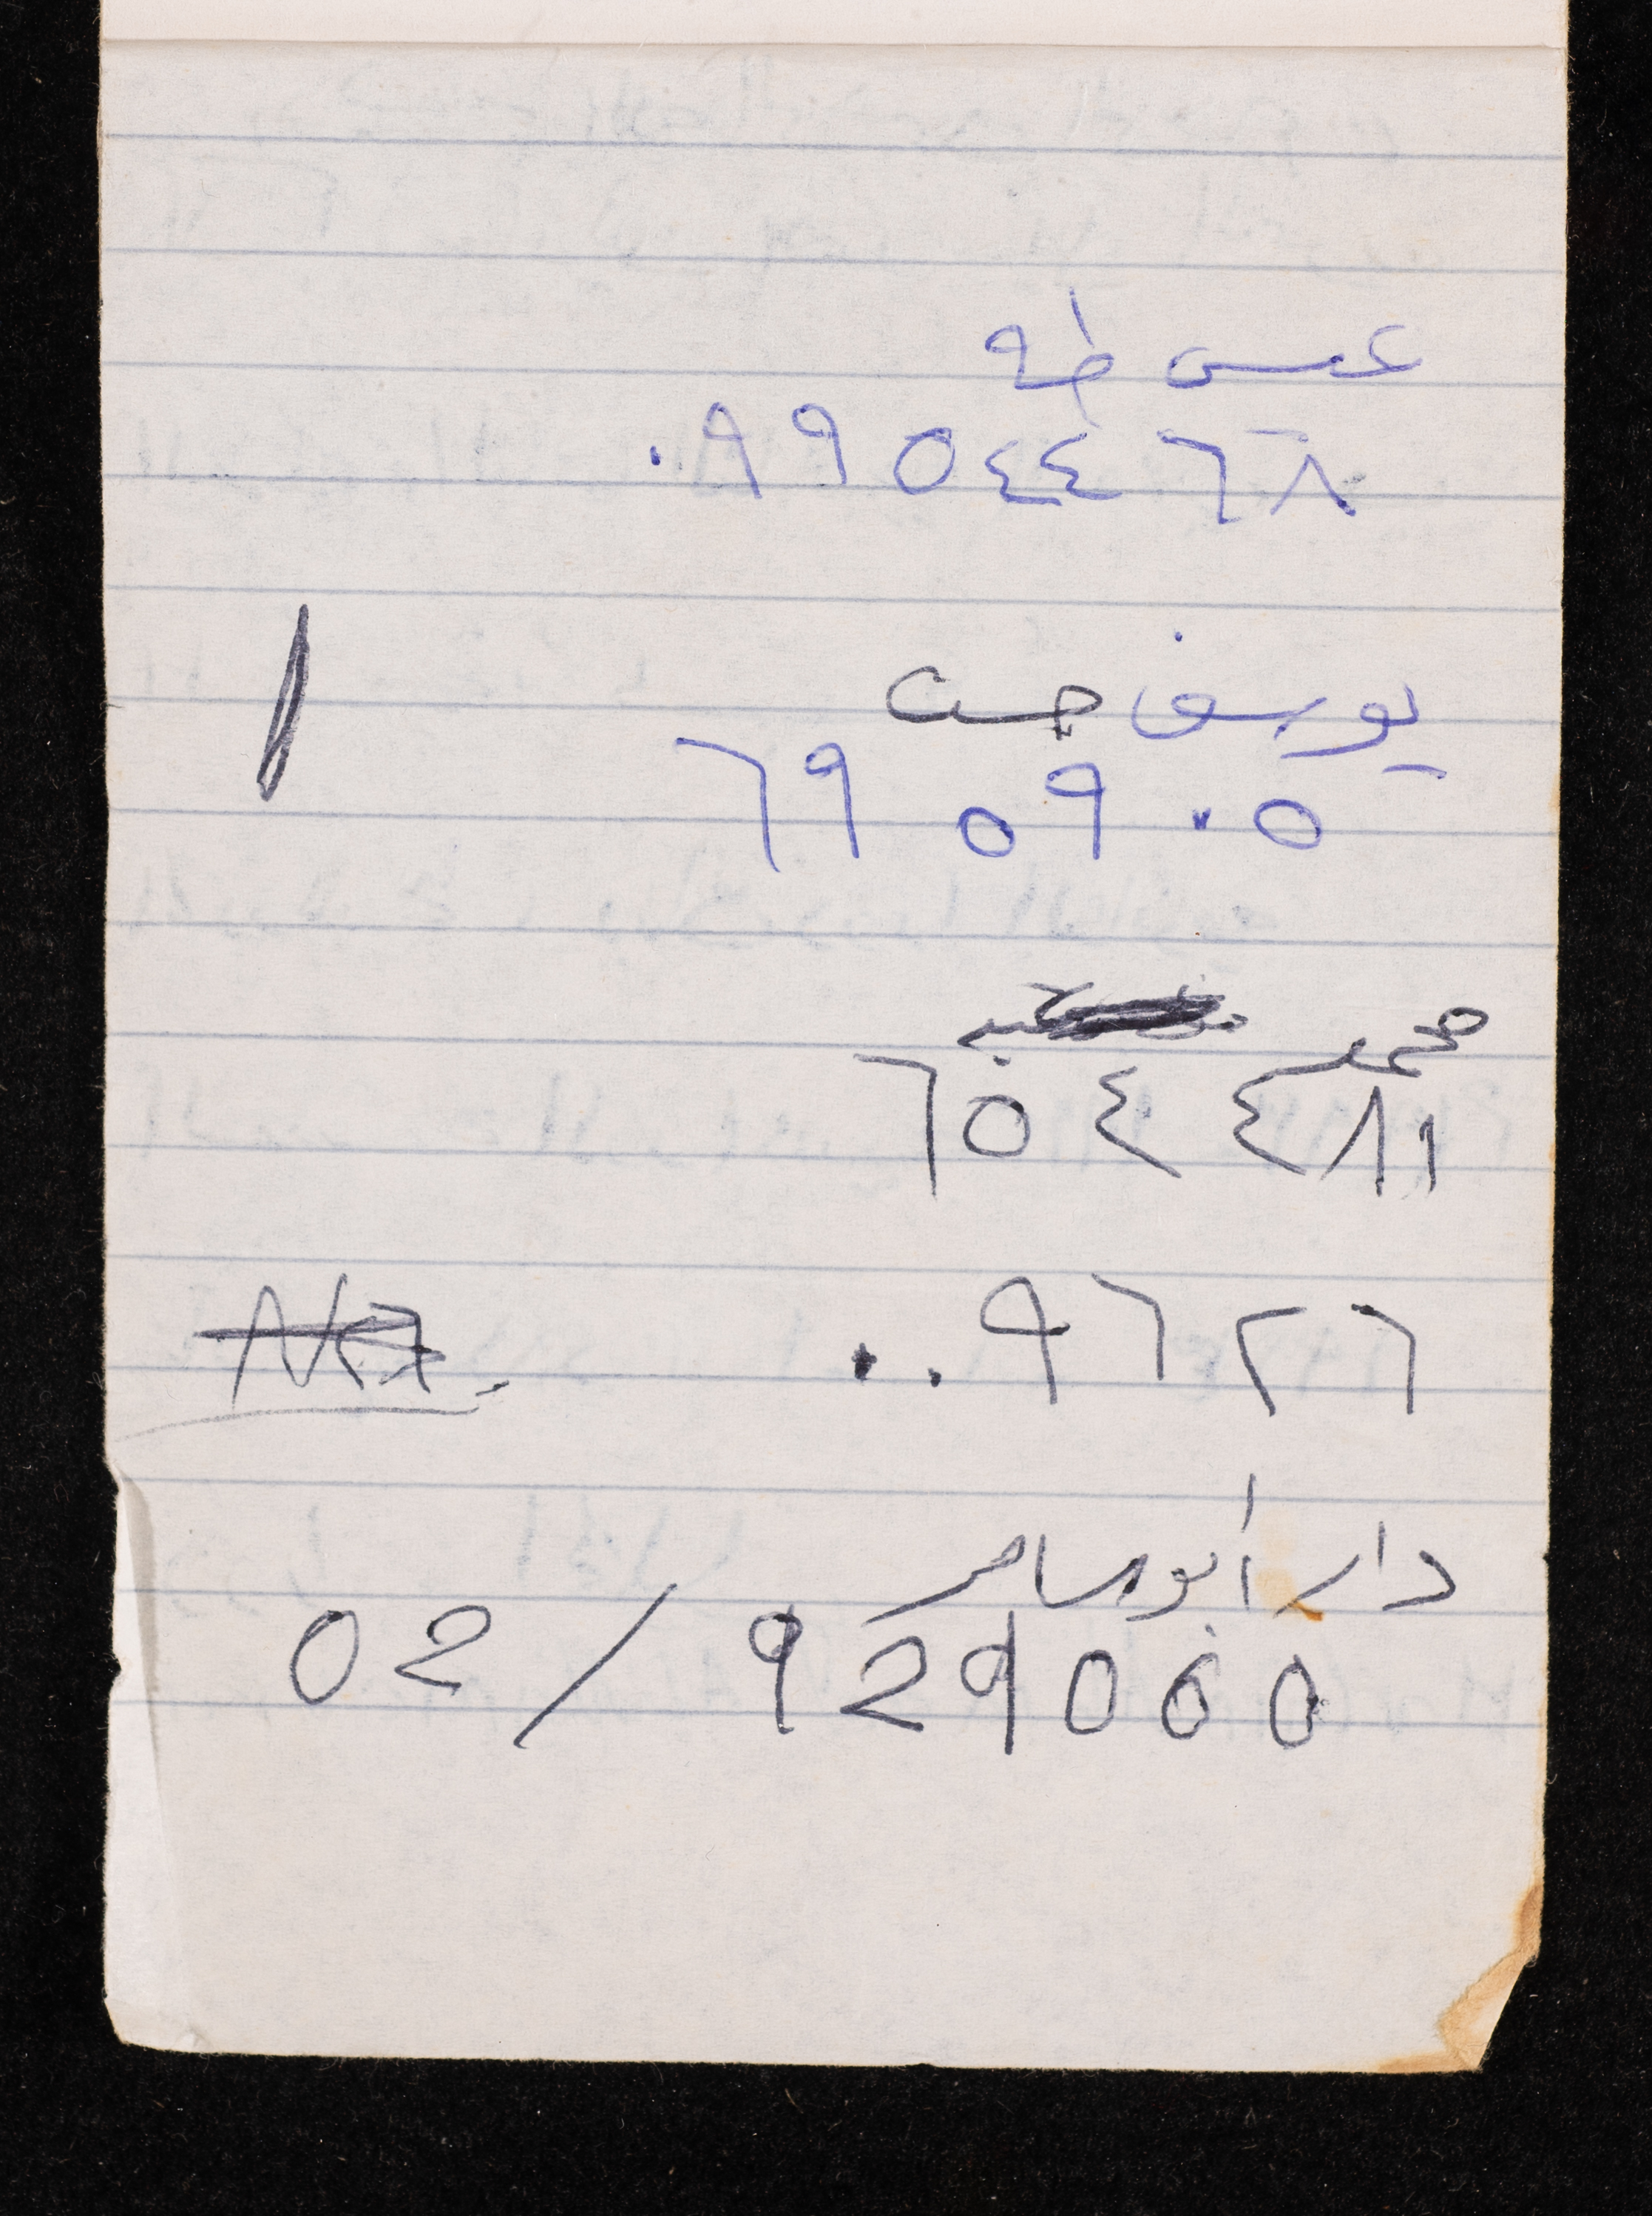 عيسى طه
٠٩٩٥٤٤٦٨
يوسف حسن
٦٩٥٩٠٥
محمد
٦٥٤٤٨١
٠٠٩٦٢٦
دار أبو سامر
02/929060